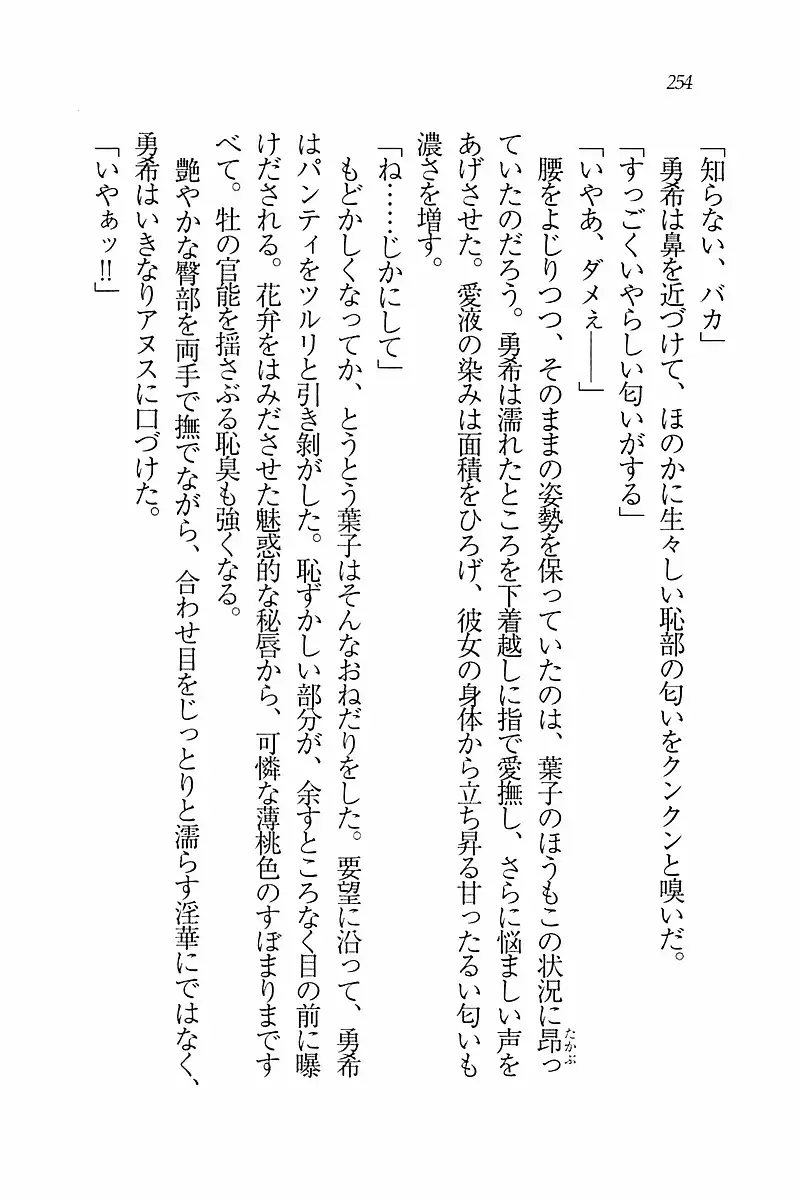 254
「知らない、バカ」
　勇希は鼻を近づけて、ほのかに生々しい恥部の匂いをクンクンと嗅いだ。
「すっごくいやらしい匂いがする」
「いやあ、ダメぇ――」
　腰をよじりつつ、そのままの姿勢を保っていたのは、葉子のほうもこの状況に昂っ
たかぶ
ていたのだろう。勇希は濡れたところを下着越しに指で愛撫し、さらに悩ましい声を
あげさせた。愛液の染みは面積をひろげ、彼女の身体から立ち昇る甘ったるい匂いも
濃さを増す。
「ね……じかにして」
　もどかしくなってか、とうとう葉子はそんなおねだりをした。要望に沿って、勇希
はパンティをツルリと引き剝がした。恥ずかしい部分が、余すところなく目の前に曝
けだされる。花弁をはみださせた魅惑的な秘唇から、可憐な薄桃色のすぼまりまです
べて。牡の官能を揺さぶる恥臭も強くなる。
　艶やかな臀部を両手で撫でながら、合わせ目をじっとりと濡らす淫華にではなく、
勇希はいきなりアヌスに口づけた。
「いやぁッ!!」